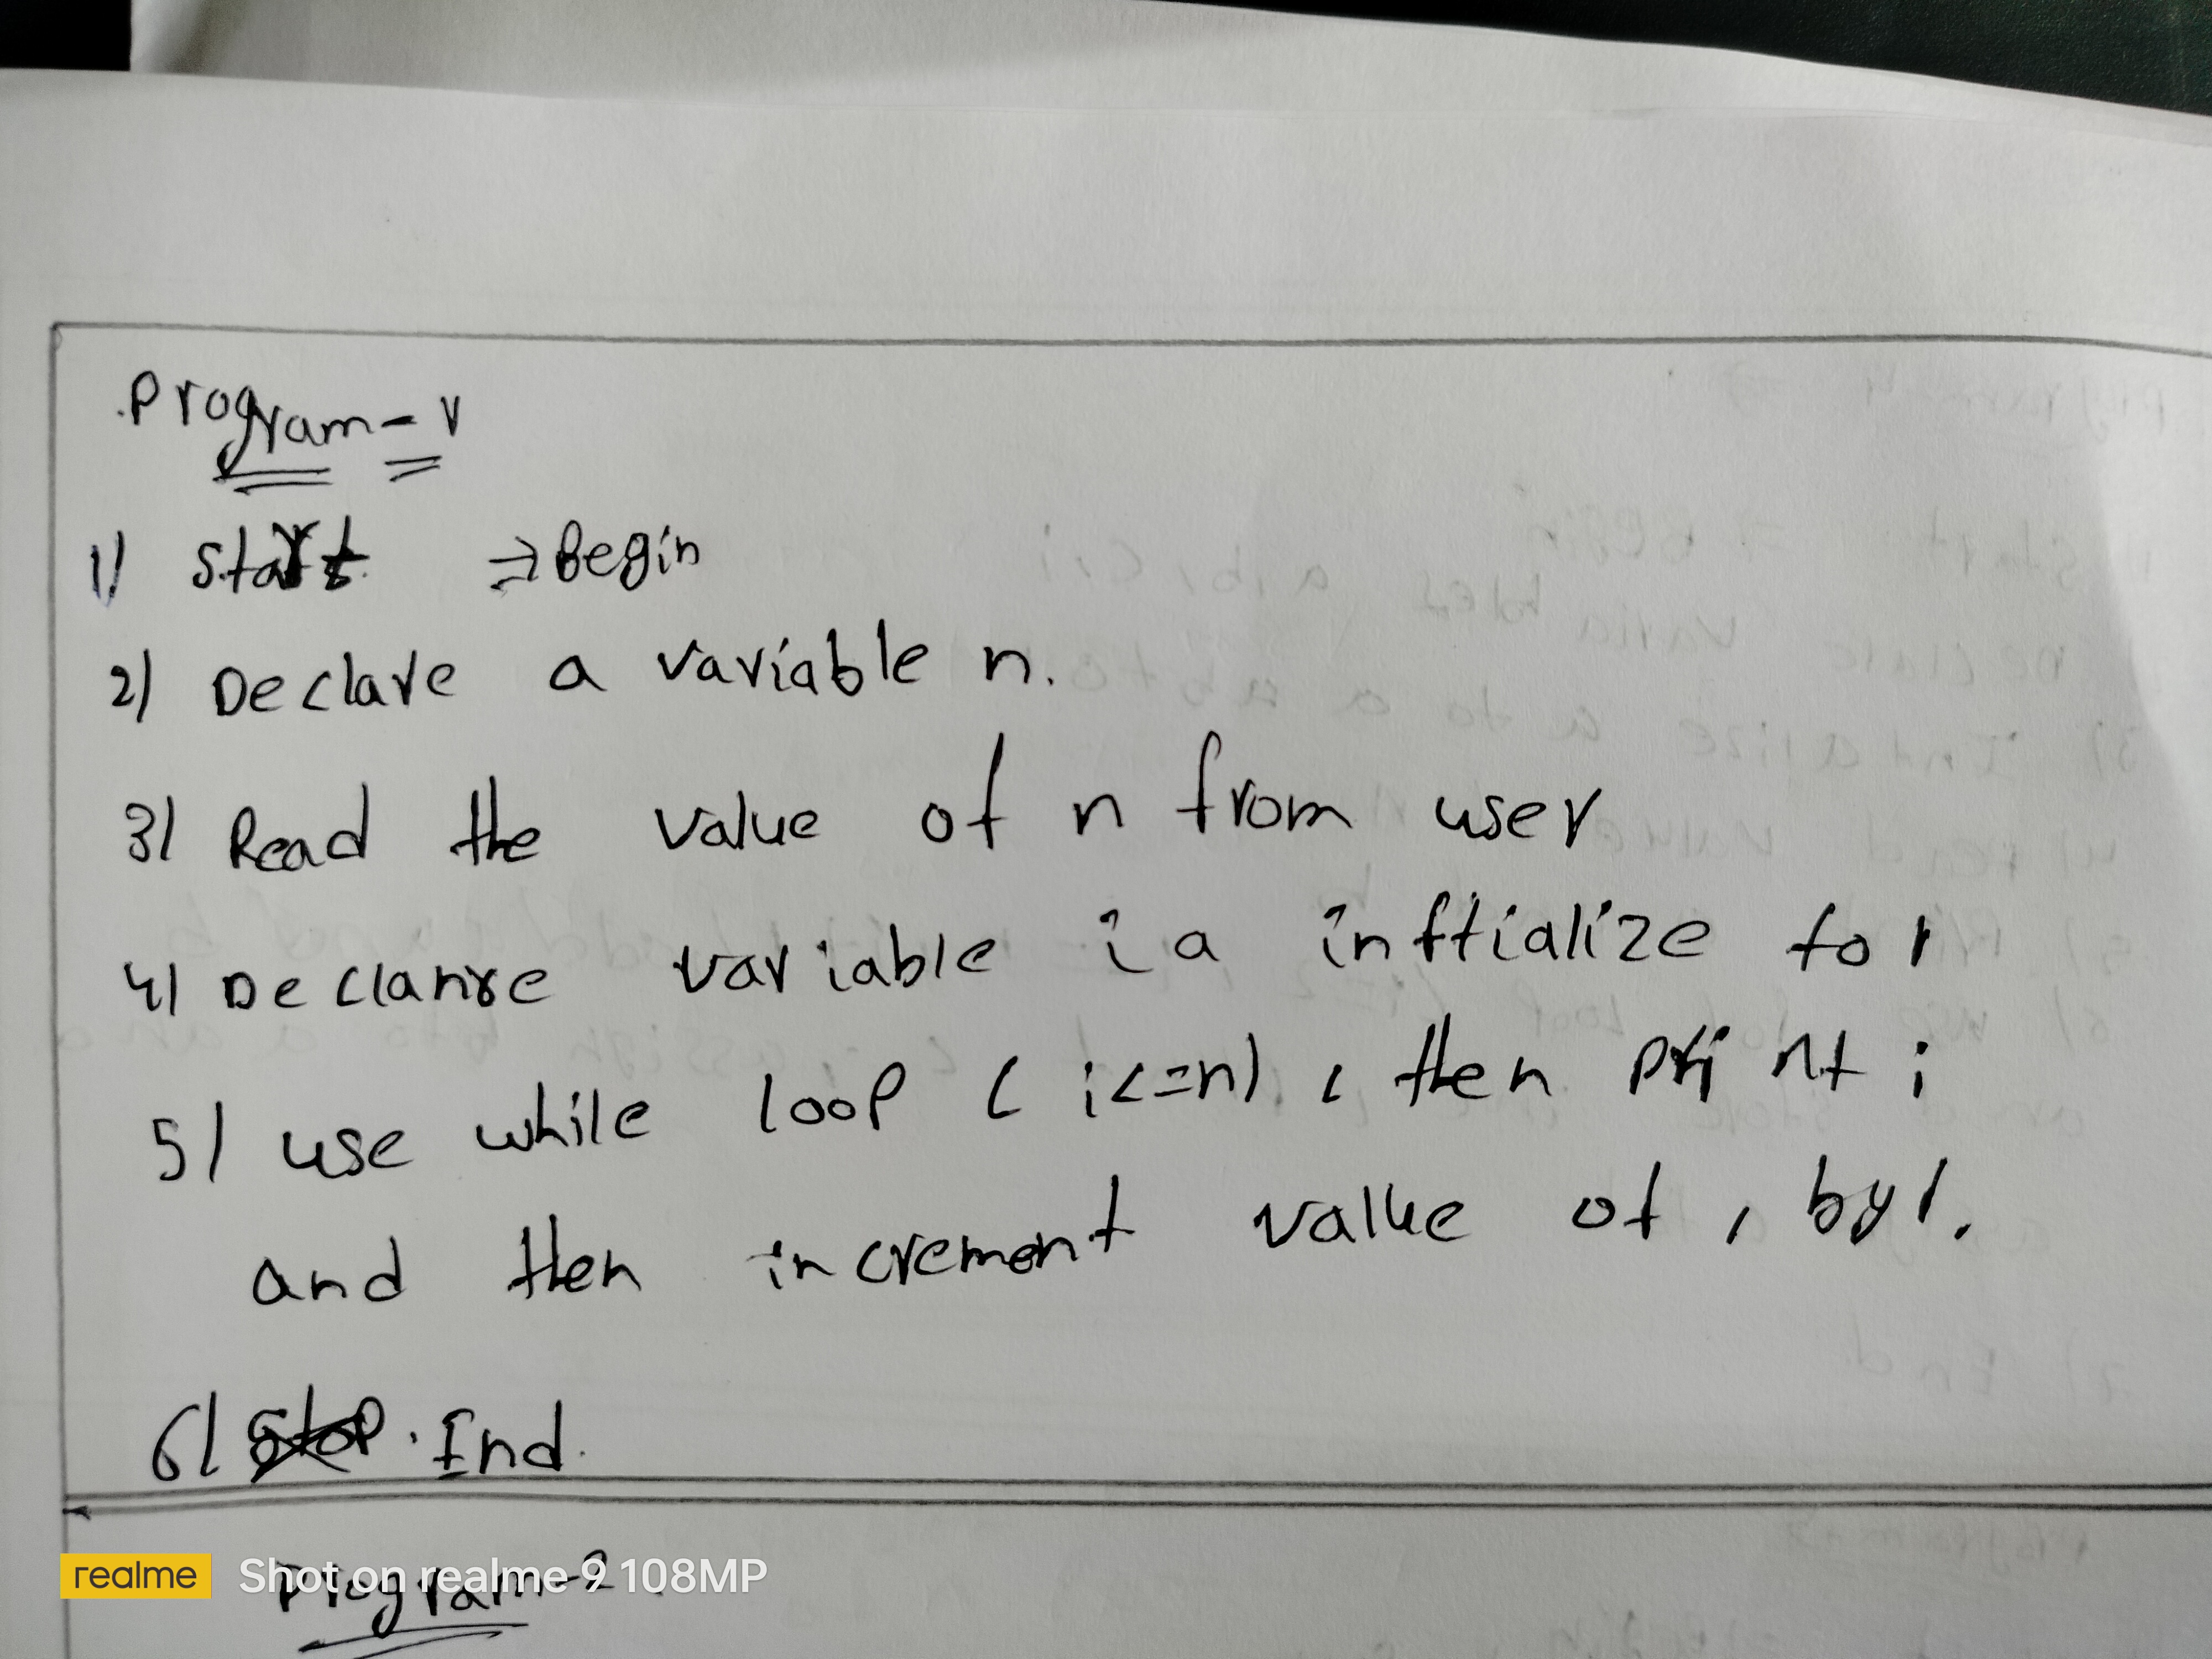 Program - 1
1) Start ⇒ Begin
2) Declare a variable n.
3) Read the value of n from user
4) Declanre variable i a inftialize to 1
5) use while loop ( i<=n) , then print i
and then increment value of i by 1.
6) Stop. End.
Program-2
realme Shot on realme 9 108MP